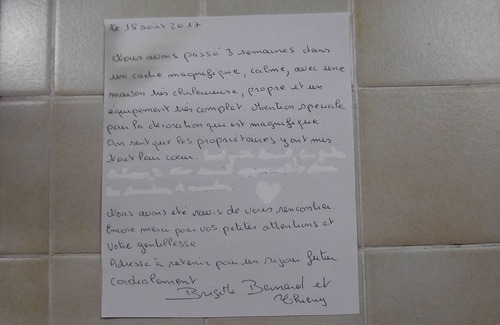 le 18 août 2017
Nous avons passé 3 semaines dans
un cadre magnifique, calme, avec une
maison très chaleureuse, propre et un
equipement très complet. Mention speciale
pour la décoration qui est magnifique
On sent que les propriétaires y ont mis
tout leur coeur.
Nous avons été ravis de vous rencontrer.
Encore merci pour vos petites attentions et
votre gentillesse
Adresse à retenir pour un séjour futur
Cordialement
Brigitte Bernard et
Thierry